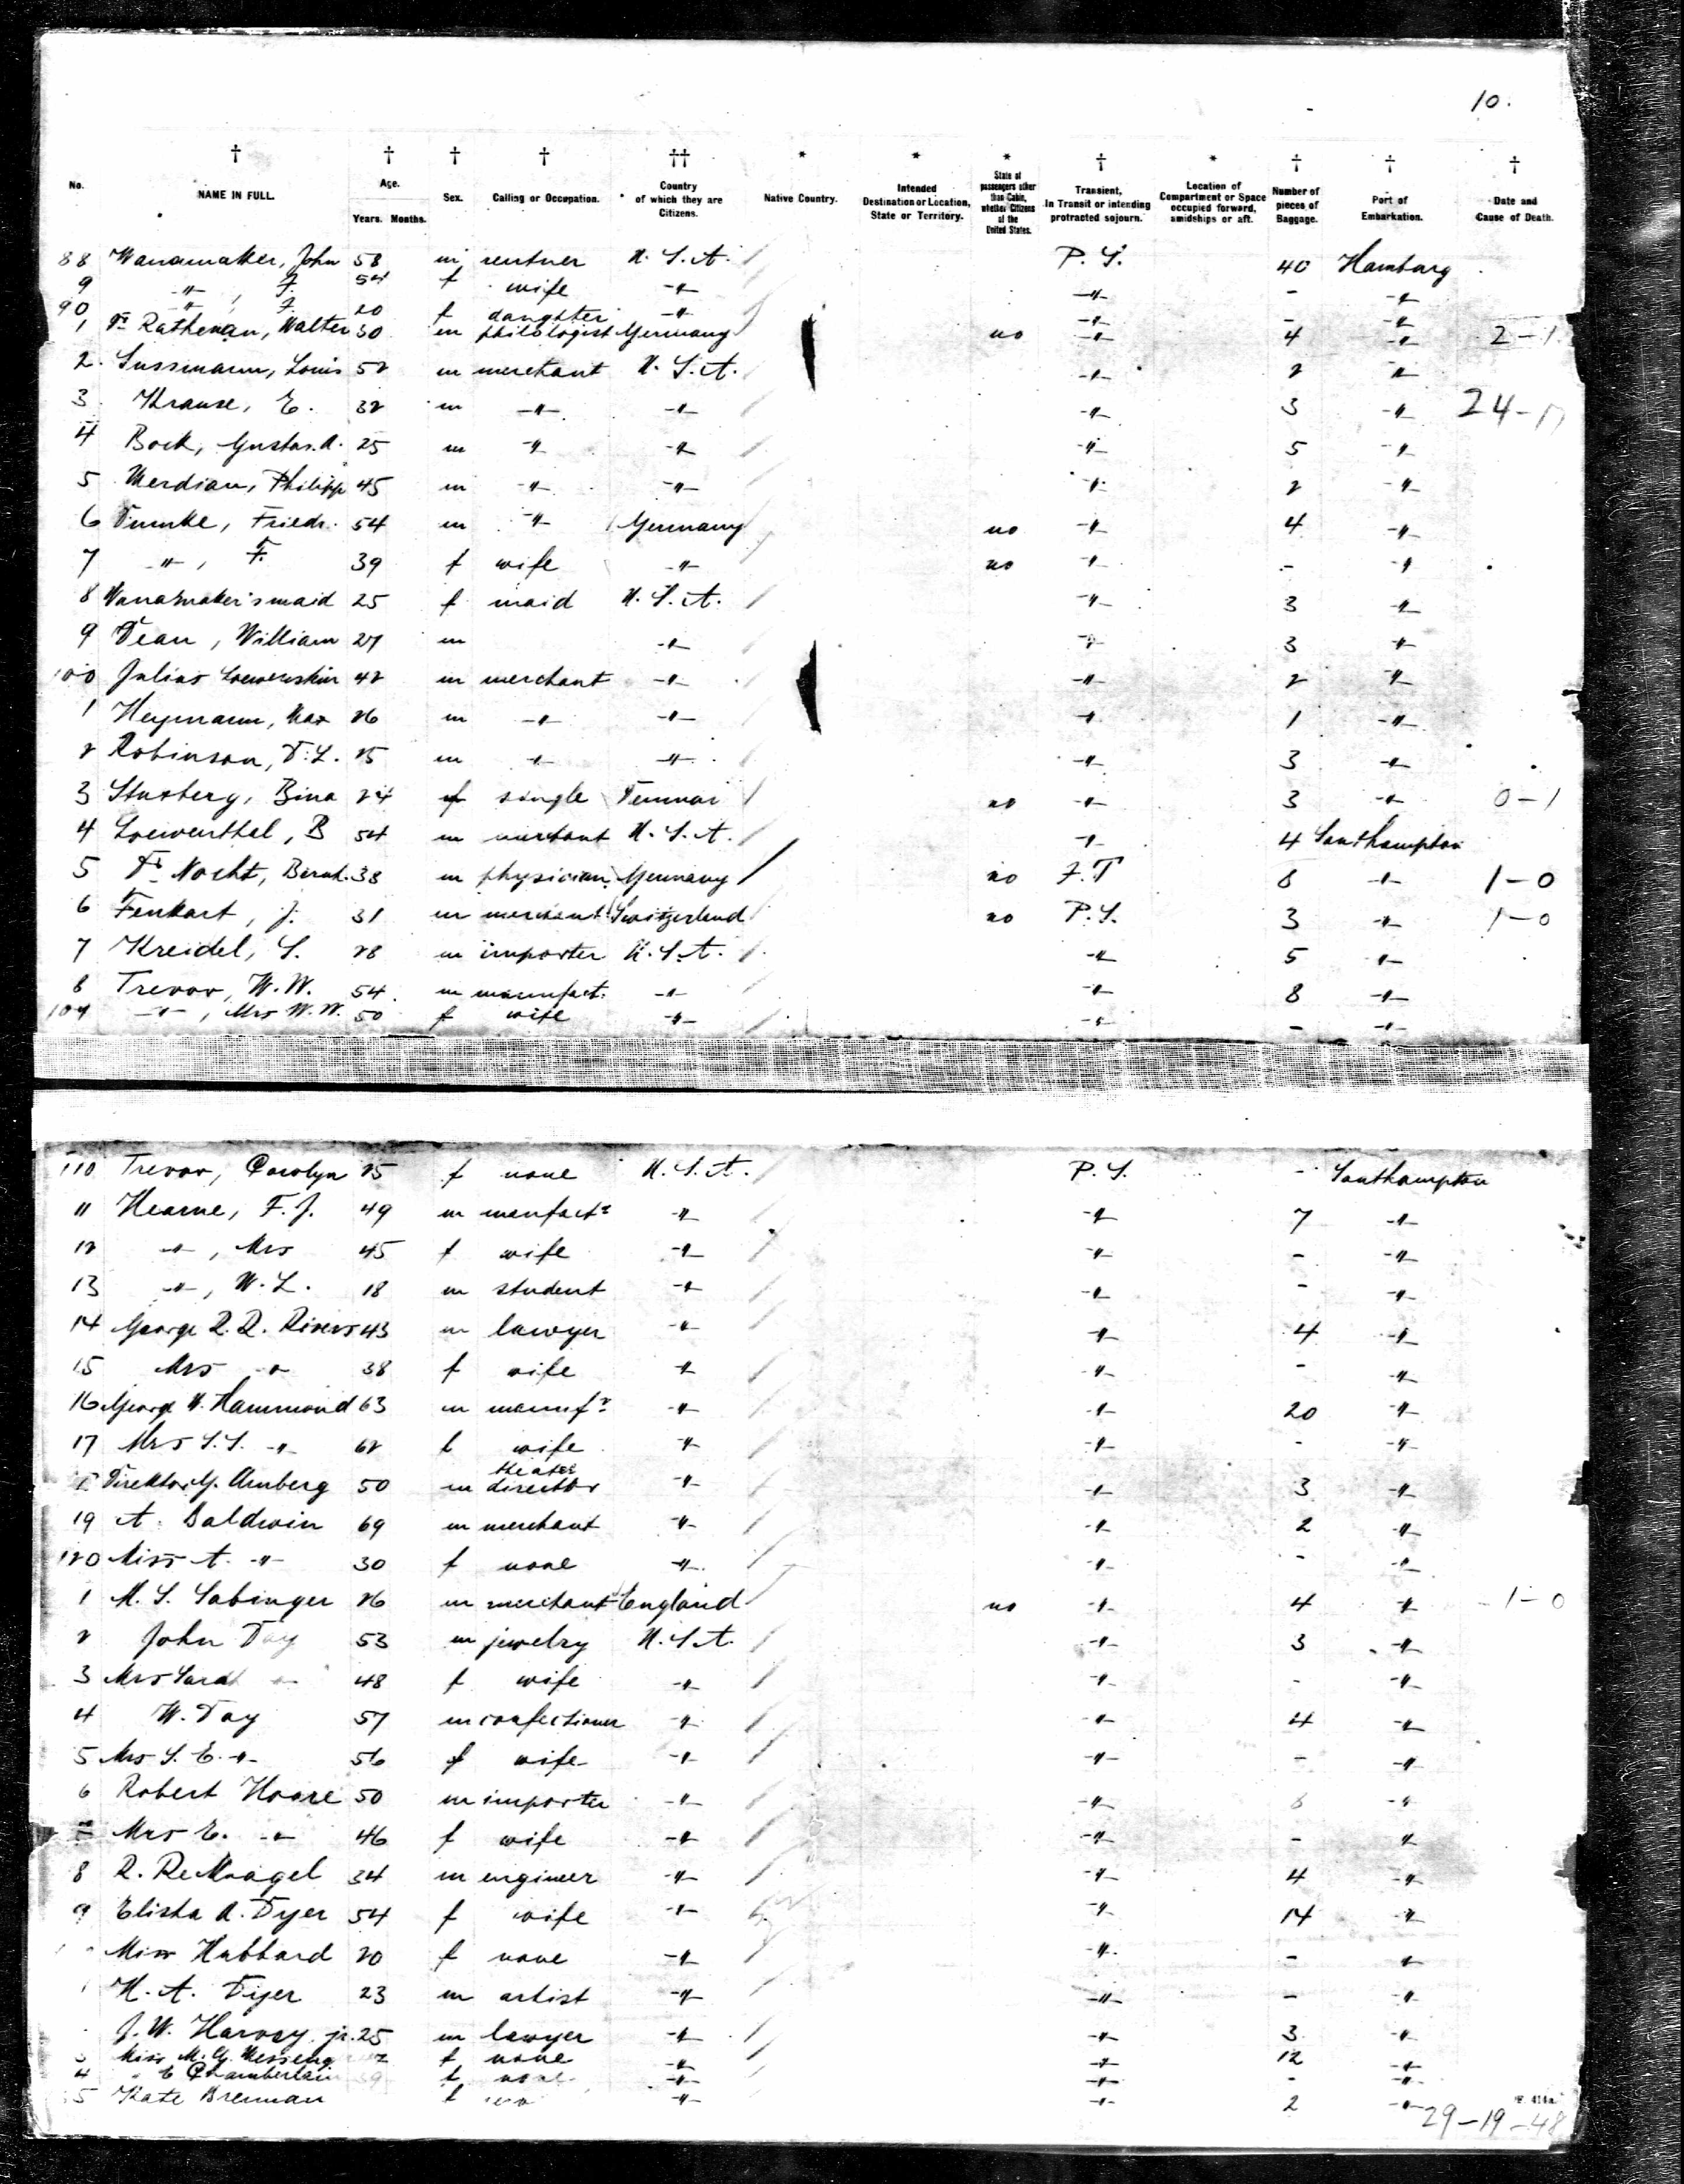 10.
No. NAME IN FULL. Age. Years. Months. Sex. Calling or Occupation. Country of which they are Citizens. Native Country. Intended Destination or Location, State or Territory. State of passengers other than Cabin, whether Citizens of the United States. Transient, In Transit or intending protracted sojourn. Location of Compartment or Space occupied forward, amidships or aft. Number of pieces of Baggage. Port of Embarkation. Date and Cause of Death.
88 Wanamaker, John 58 m rentner U.S.A. P.S. 40 Hamburg
9 -"- , F. 54 f wife -"- -"- - -"-
90 -"- , F. 20 f daughter -"- -"- - -"-
1 Dr Rathenau, Walter 30 m philologist Germany no -"- 4 -"- 2-1
2 Sussmann, Louis 52 m merchant U.S.A. -"- 2 -"-
3 Krause, E. 32 m -"- -"- -"- 3 -"-
4 Bock, Gustav. A. 25 m -"- -"- -"- 5 -"-
5 Merdian, Philipp 45 m -"- -"- -"- 2 -"-
6 Dumke, Friedr. 54 m -"- Germany no -"- 4 -"-
7 -"- , F. 39 f wife -"- no -"- - -"-
8 Wanamaker's maid 25 f maid U.S.A. -"- 3 -"-
9 Dean, William 27 m -"- -"- 3 -"-
100 Julius 42 m merchant -"- -"- 2 -"-
1 Heymann, Max 26 m -"- -"- -"- 1 -"-
2 Robinson, D. L. 25 m -"- -"- -"- 3 -"-
3 Bina 24 f single no -"- 3 -"- 0-1
4 Loewenthal, B 54 m merchant U.S.A. -"- 4 Southampton
5 Dr Nocht, Bernh. 38 m physician Germany no J.T 8 -"- 1-0
6 Fenkart, J. 31 m merchant Switzerland no P.S. 3 -"- 1-0
7 Kreidel, S. 28 m importer U.S.A. -"- 5 -"-
8 Trevor, W.W. 54 m manufact. -"- -"- 8 -"-
109 -"- , Mrs W.W. 50 f wife -"- -"- - -"-
110 Trevor, Carolyn 25 f none U.S.A. P.S. - Southampton
11 Hearne, F.J. 49 m manfactr -"- -"- 7 -"-
12 -"- , Mrs 45 f wife -"- -"- - -"-
13 -"- , W.L. 18 m student -"- -"- - -"-
14 George R.R. Rivers 43 m lawyer -"- -"- 4 -"-
15 Mrs -"- 38 f wife -"- -"- - -"-
16 George W. Hammond 63 m manufr -"- -"- 20 -"-
17 Mrs S.S. -"- 62 f wife -"- -"- - -"-
Direktor G. Amberg 50 m theater director -"- -"- 3 -"-
19 A. Baldwin 69 m merchant -"- -"- 2 -"-
120 Miss A. -"- 30 f none -"- -"- - -"-
1 M.S. Sabinger 26 m merchant England no -"- 4 -"- 1-0
2 John Day 53 m jewelry U.S.A. -"- 3 -"-
3 Mrs Sarah -"- 48 f wife -"- -"- - -"-
4 W. Day 57 m confectioner -"- -"- 4 -"-
5 Mrs S.E. -"- 56 f wife -"- -"- - -"-
6 Robert Hoare 50 m importer -"- -"- -"-
Mrs E. -"- 46 f wife -"- -"- - -"-
8 R. 34 m engineer -"- -"- 4 -"-
9 Elisha A. Dyer 54 f wife -"- -"- 14 -"-
Miss Hubbard 20 f none -"- -"- - -"-
1 H. A. Dyer 23 m artist -"- -"- - -"-
J.W. Harvey jr. 25 m lawyer -"- -"- 3 -"-
3 Miss M. G. f none -"- -"- 12 -"-
4 " E Chamberlain f none -"- -"- - -"-
5 Kate Brennan f -"- -"- 2 -"-
29-19-48